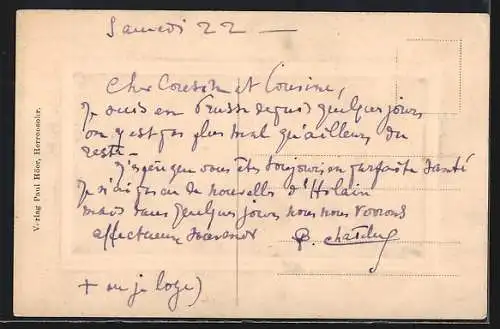 Samedi 22 —
Cher Cousin et Cousine,
Je suis en Prusse depuis quelques jours
on y est pas plus mal qu'ailleurs du
reste —
J'espère que vous êtes toujours en parfaite santé
Je n'ai pas eu de nouvelles d'Hilain
mais dans quelques jours nous nous verrons
affectueux
+ ou je loge)
Verlag Paul Höer, Herrensohr.